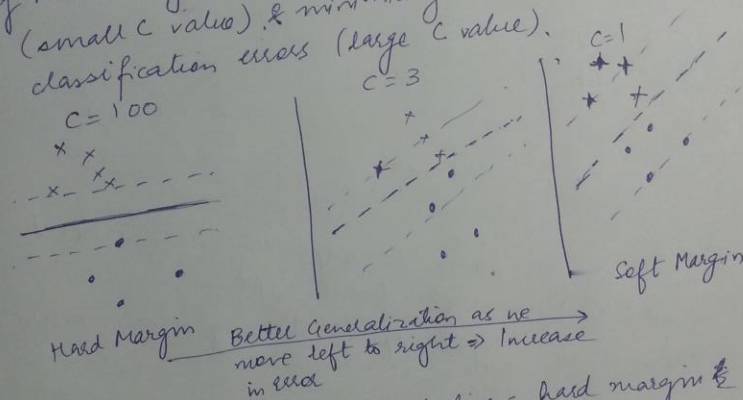 (small C value) &
classification errors (large C value).
C = 100
C = 3
C = 1
Hard Margin
Soft Margin
Better Generalization as we
move left to right => Increase
in error
hard margin